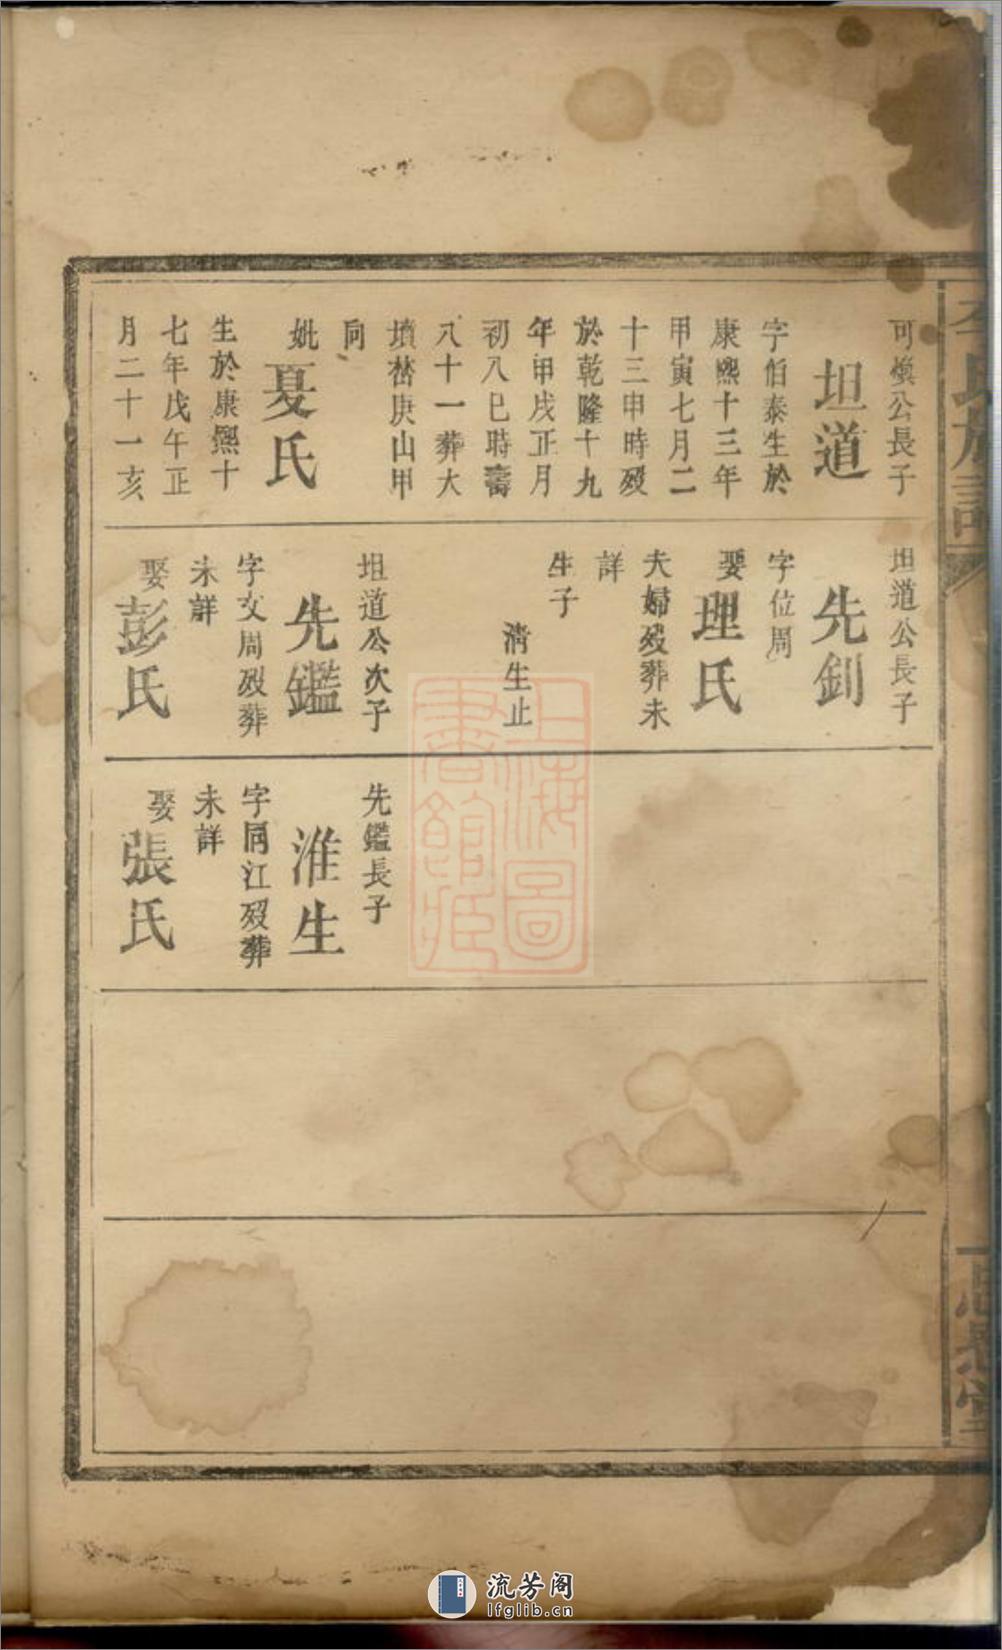 李氏族譜
可煥公長子
坦道
字伯泰生於
康熙十三年
甲寅七月二
十三申時歿
於乾隆十九
年甲戌正月
初八巳時壽
八十一葬大
墳嶅庚山甲
向
妣夏氏
生於康熙十
七年戊午正
月二十一亥
坦道公長子
先釗
字位周
娶理氏
夫婦歿葬未
詳
生子
淸生止
坦道公次子
先鑑
字文周歿葬
未詳
娶彭氏
先鑑長子
淮生
字同江歿葬
未詳
娶張氏
上海圖
書館藏
流芳阁
lfglib.cn